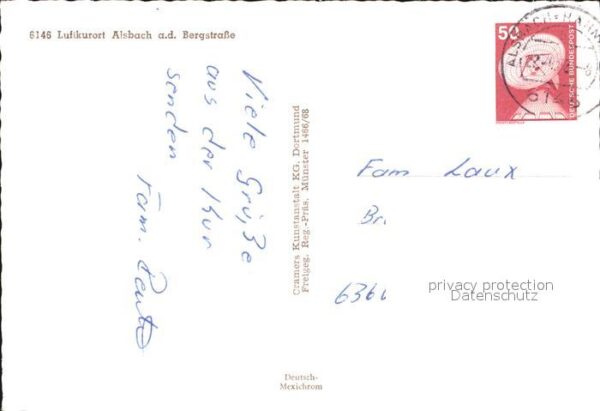 6146 Luftkurort Alsbach a.d. Bergstraße
Viele Grüße
aus der Kur
senden
Fam.
Cramers Kunstanstalt KG. Dortmund
Freigeg. Reg.-Präs. Münster 1466/68
50
DEUTSCHE BUNDESPOST
ALSBACH-HÄHN
Fam Laux
Br.
636
privacy protection
Datenschutz
Deutsch-
Mexichrom